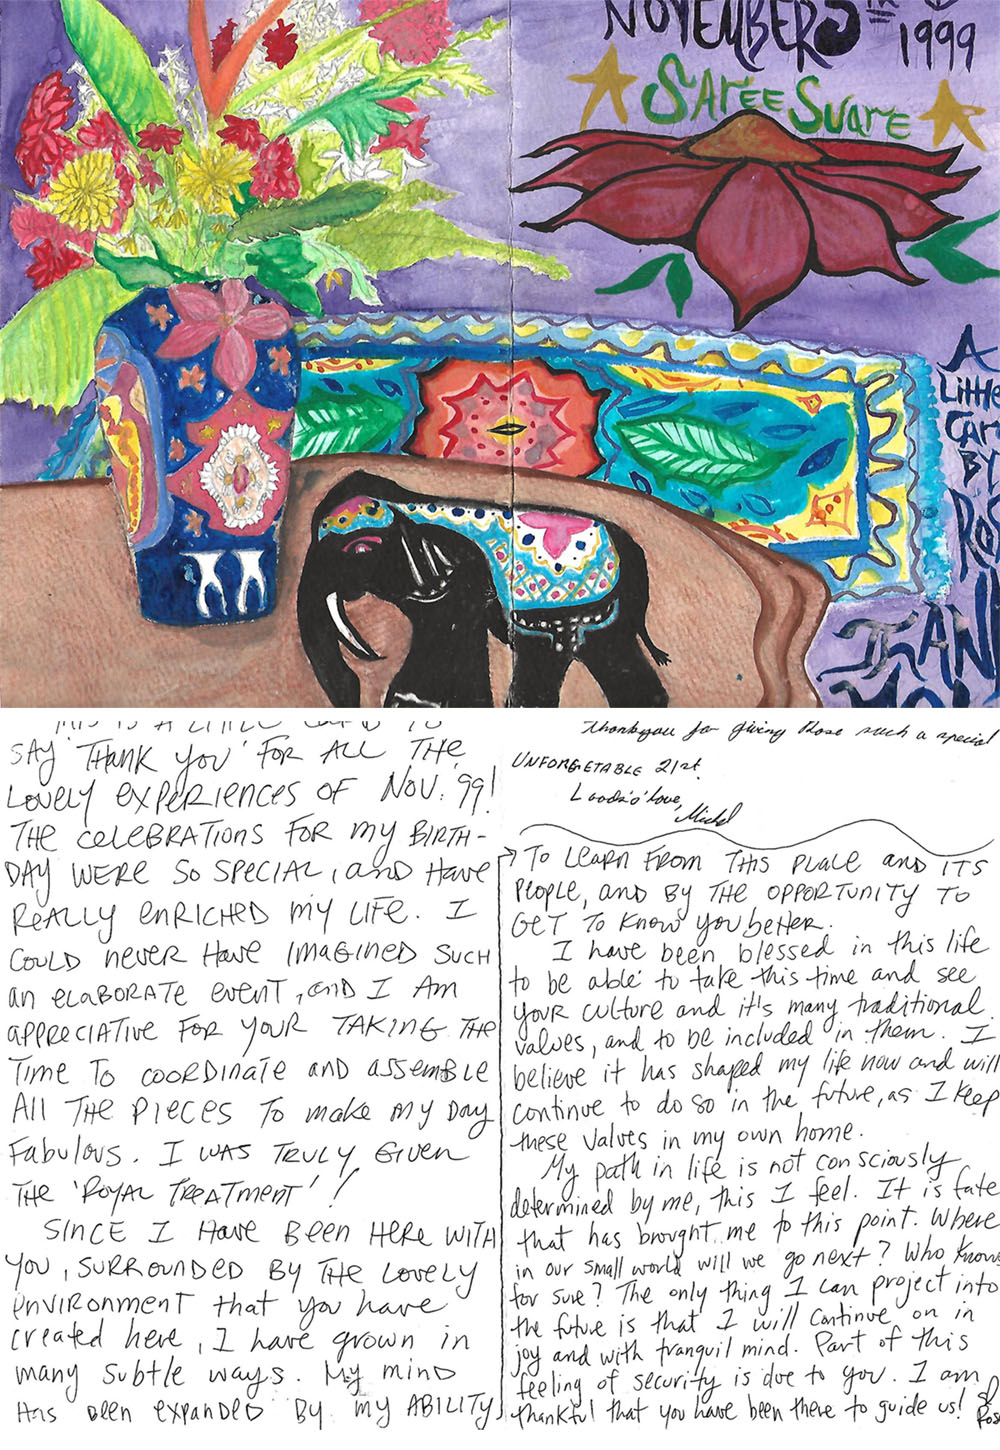 NOVEMBER 5TH
1999
SAREE SUARE
A
LITTLE
CARD
BY
ROS
THANK
YOU
THIS IS A LITTLE CARD TO
SAY 'THANK YOU' FOR ALL THE
LOVELY EXPERIENCES OF NOV. 99!
THE CELEBRATIONS FOR MY BIRTH-
DAY WERE SO SPECIAL, AND HAVE
REALLY ENRICHED MY LIFE. I
COULD NEVER HAVE IMAGINED SUCH
AN ELABORATE EVENT, AND I AM
APPRECIATIVE FOR YOUR TAKING THE
TIME TO COORDINATE AND ASSEMBLE
ALL THE PIECES TO MAKE MY DAY
FABULOUS. I WAS TRULY GIVEN
THE 'ROYAL TREATMENT'!
SINCE I HAVE BEEN HERE WITH
YOU, SURROUNDED BY THE LOVELY
ENVIRONMENT that you have
created here, I have grown in
many subtle ways. My mind
HAS BEEN EXPANDED BY MY ABILITY
Thankyou for giving Rose such a special
UNFORGETABLE 21st.
Loads'o'love,
→ TO LEARN FROM THIS PLACE AND ITS
PEOPLE, AND BY THE OPPORTUNITY TO
GET TO KNOW YOU better.
I have been blessed in this life
to be able to take this time and see
your culture and it's many traditional
values, and to be included in them. I
believe it has shaped my life now and will
continue to do so in the future, as I keep
these values in my own home.
My path in life is not consciously
determined by me, this I feel. It is fate
that has brought me to this point. Where
in our small world will we go next? Who knows
for sure? The only thing I can project into
the future is that I will continue on in
joy and with tranquil mind. Part of this
feeling of security is due to you. I am
thankful that you have been there to guide us!
Ros